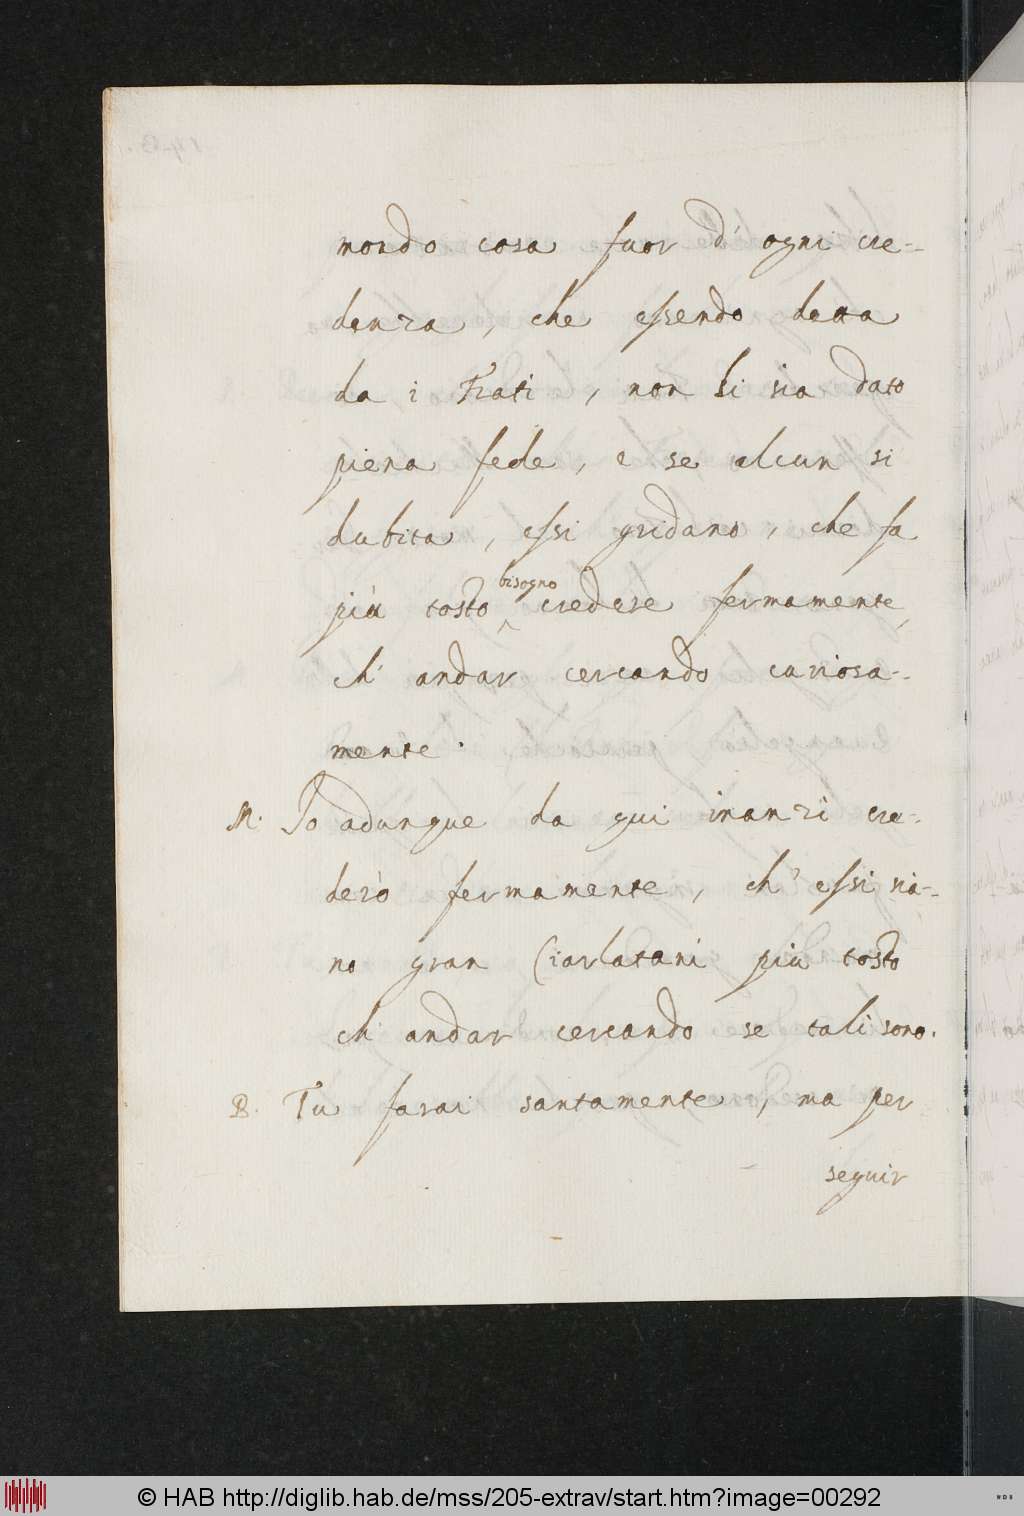 mondo cosa fuor d' ogni cre-
denza, che essendo detta
da i Frati, non li sia dato
piena fede, e se alcun si
dubita, essi gridano, che fa
più tosto bisogno credere fermamente,
ch' andar cercando curiosa-
mente.
M. Io adunque da qui inanzi cre-
derò fermamente, ch' essi sia-
no gran Ciarlatani più tosto
ch' andar cercando se tali sono.
B. Tu farai santamente, ma per
seguir
© HAB http://diglib.hab.de/mss/205-extrav/start.htm?image=00292